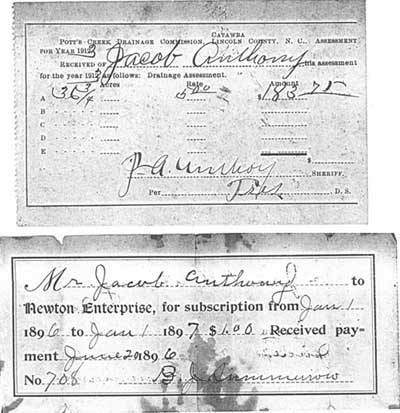 CATAWBA
POTT'S CREEK DRAINAGE COMMISSION, LINCOLN COUNTY, N. C., ASSESSMENT
FOR YEAR 1913
RECEIVED OF Jacob Anthony this assessment
for the year 191 as follows: Drainage Assessment.
Acres Rate Amount
A 36 3/4 5 00 $183 75
B
C
D
E
$
SHERIFF.
Per D. S.
Mr Jacob Anthony to
Newton Enterprise, for subscription from Jan 1
1896 to Jan 1 1897 $1.00 Received pay-
ment June 20 1896
No. 708